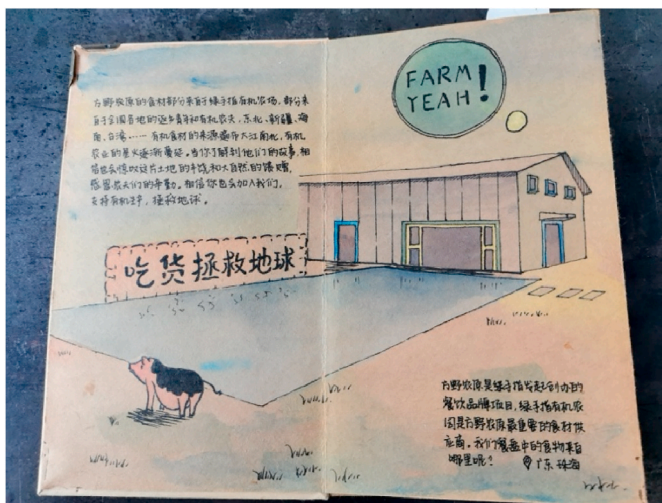 方野农原的食材部分来自于绿手指有机农场，部分来
自于全国各地的返乡青年和有机农夫，东北、新疆、海
南、台湾……有机食材的来源遍布大江南北，有机
农业的星火逐渐蔓延。当你了解到他们的故事，相
信也会惊叹这片土地的丰饶和大自然的馈赠，
感恩农夫们的辛勤。相信你也会加入我们，
支持有机生产，拯救地球。
吃货拯救地球
FARM
YEAH!
方野农原是绿手指发起创办的
餐饮品牌项目，绿手指有机农
园是方野农原最重要的食材供
应商。我们餐盘中的食物来自
哪里呢？ 广东 珠海